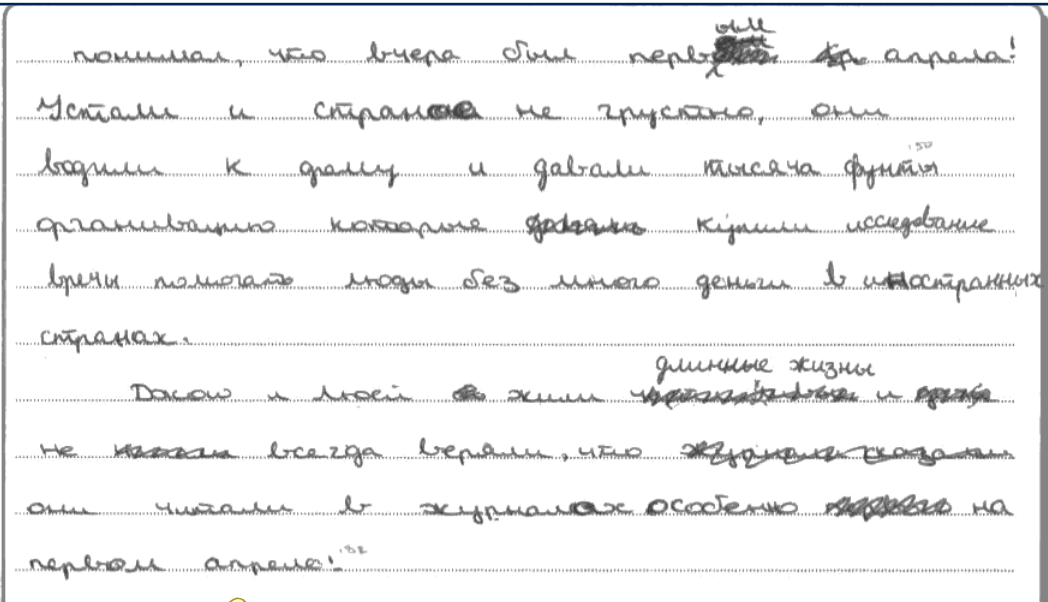 понимал, что вчера был первым апрела!
Устали и странное не грустно, они
водили к дому и давали тысяча фунты 150
организацию которые купили исследование
вречы помогать люды без много деньги в иностранных
странах.
длинные жизны
Джон и Люсй жили и
не всегда веряли, что
они читали в журналах особенно на
первом апреле! 182